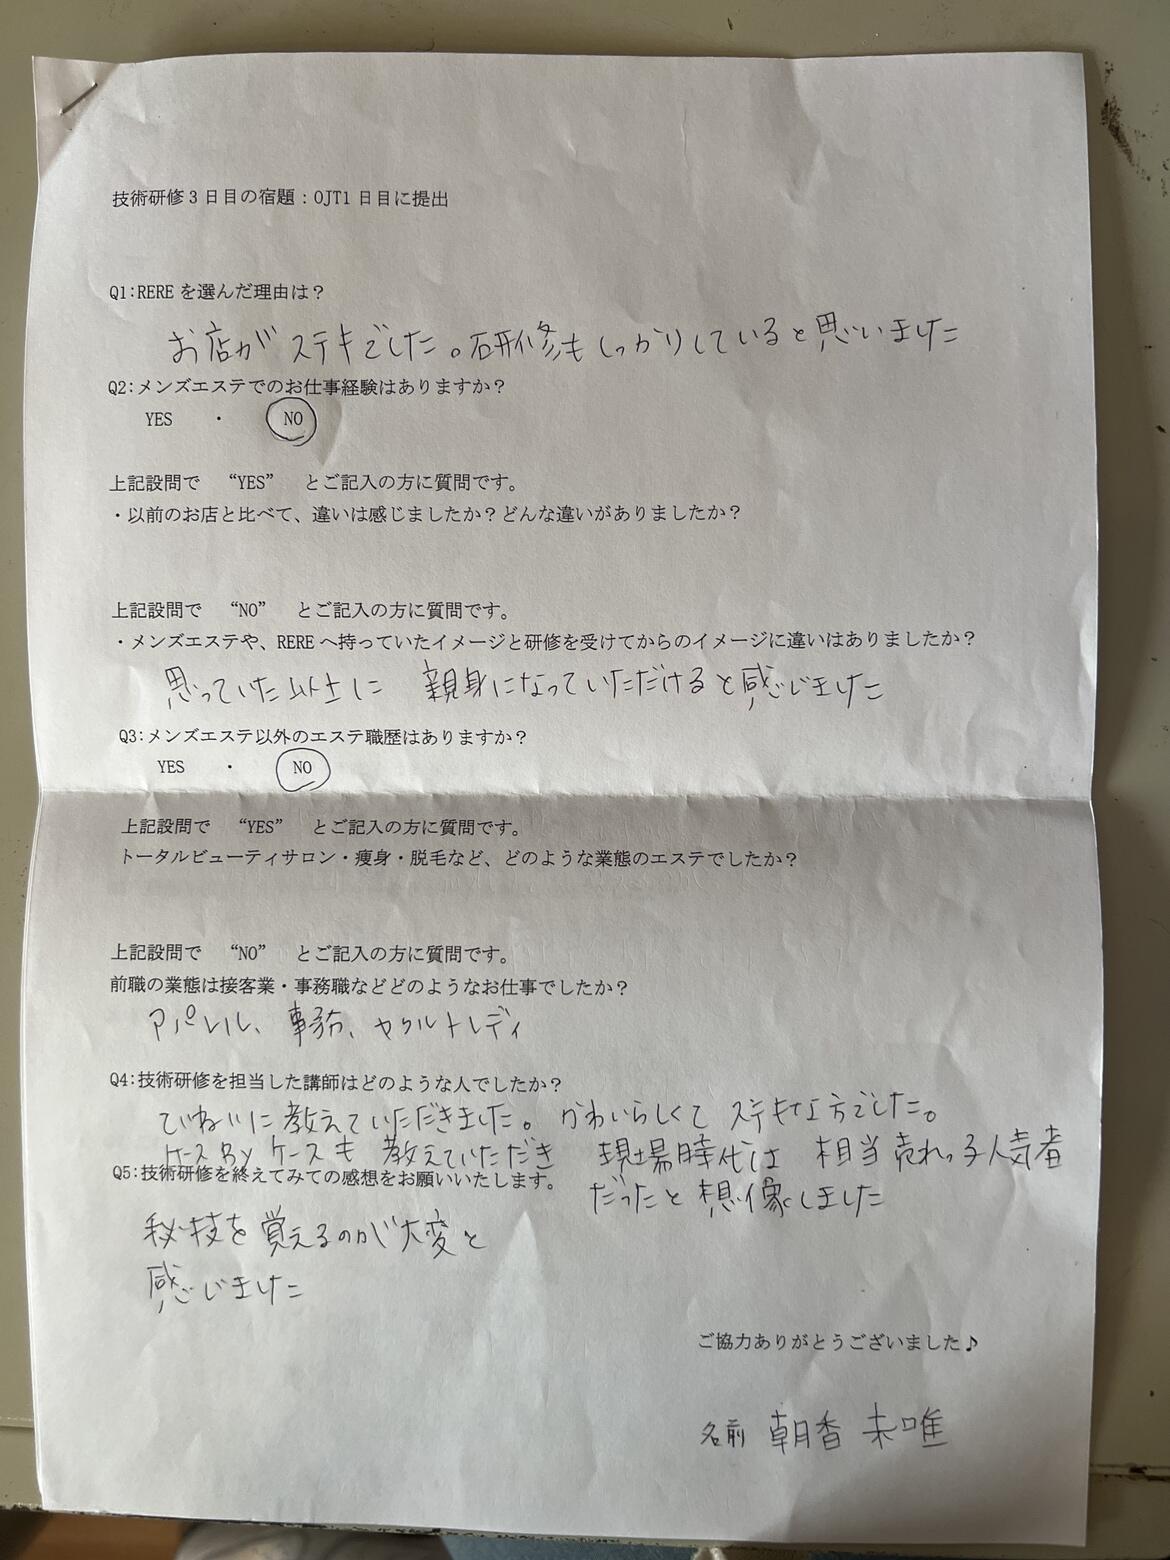 技術研修3日目の宿題：OJT1日目に提出
Q1:REREを選んだ理由は？
お店がステキでした。研修もしっかりしていると思いました
Q2:メンズエステでのお仕事経験はありますか？
YES ・ NO
上記設問で “YES” とご記入の方に質問です。
・以前のお店と比べて、違いは感じましたか？どんな違いがありましたか？
上記設問で “NO” とご記入の方に質問です。
・メンズエステや、REREへ持っていたイメージと研修を受けてからのイメージに違いはありましたか？
思っていた以上に 親身になっていただけると感じました
Q3:メンズエステ以外のエステ職歴はありますか？
YES ・ NO
上記設問で “YES” とご記入の方に質問です。
トータルビューティサロン・痩身・脱毛など、どのような業態のエステでしたか？
上記設問で “NO” とご記入の方に質問です。
前職の業態は接客業・事務職などどのようなお仕事でしたか？
アパレル、事務、ヤクルトレディ
Q4:技術研修を担当した講師はどのような人でしたか？
ていねいに教えていただきました。かわいらしくて ステキな方でした。
ケース By ケースも 教えていただき 現場時代は 相当売れっ子人気者
だったと想像しました
Q5:技術研修を終えてみての感想をお願いいたします。
秘技を覚えるのが大変と
感じました
ご協力ありがとうございました♪
名前 朝香 未唯